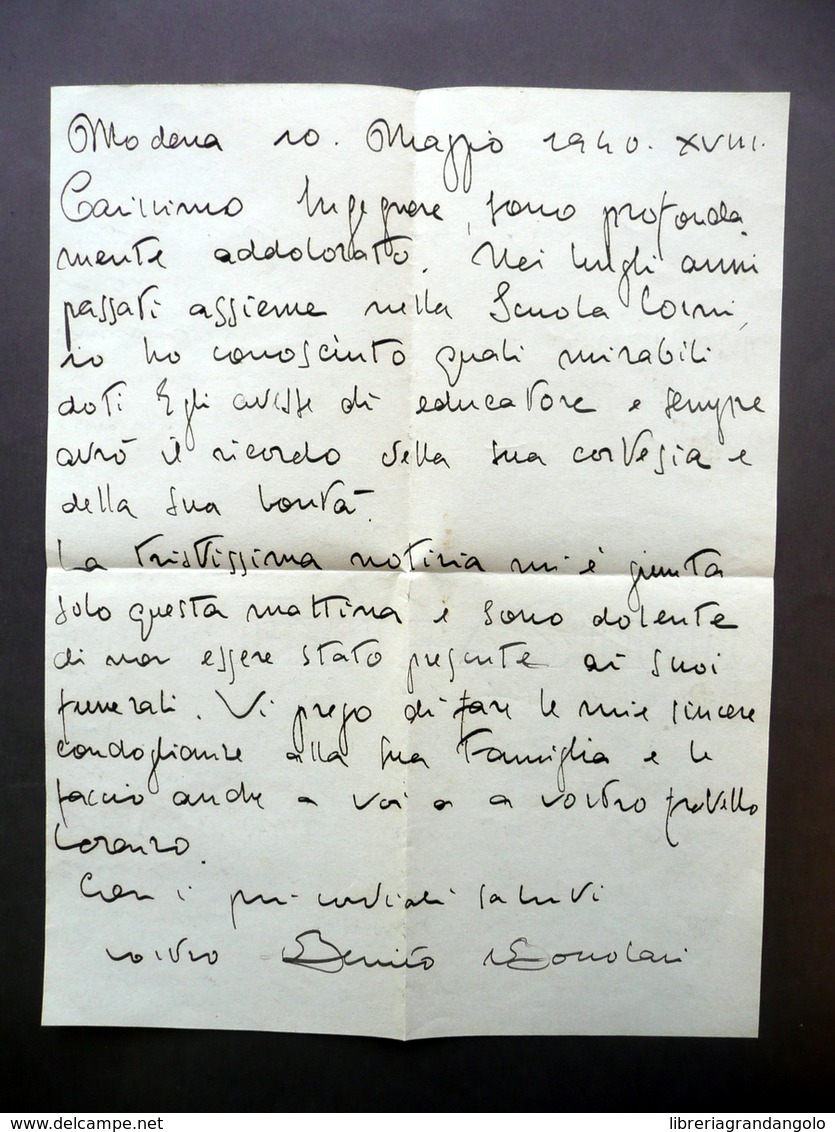 Modena 10. Maggio 1940. XVIII.
Carissimo Ingegnere, sono profonda
mente addolorato. Nei lunghi anni
passati assieme nella Scuola Corni,
io ho conosciuto quali mirabili
doti Egli avesse di educatore e sempre
avrò il ricordo della sua cortesia e
della sua bontà.
La tristissima notizia mi è giunta
solo questa mattina e sono dolente
di non essere stato presente ai suoi
funerali. Vi prego di fare le mie sincere
condoglianze alla sua Famiglia e le
faccio anche a voi e a vostro fratello
Lorenzo.
Con i più cordiali saluti
vostro Benito
delcampe.net
libreriagrandangolo